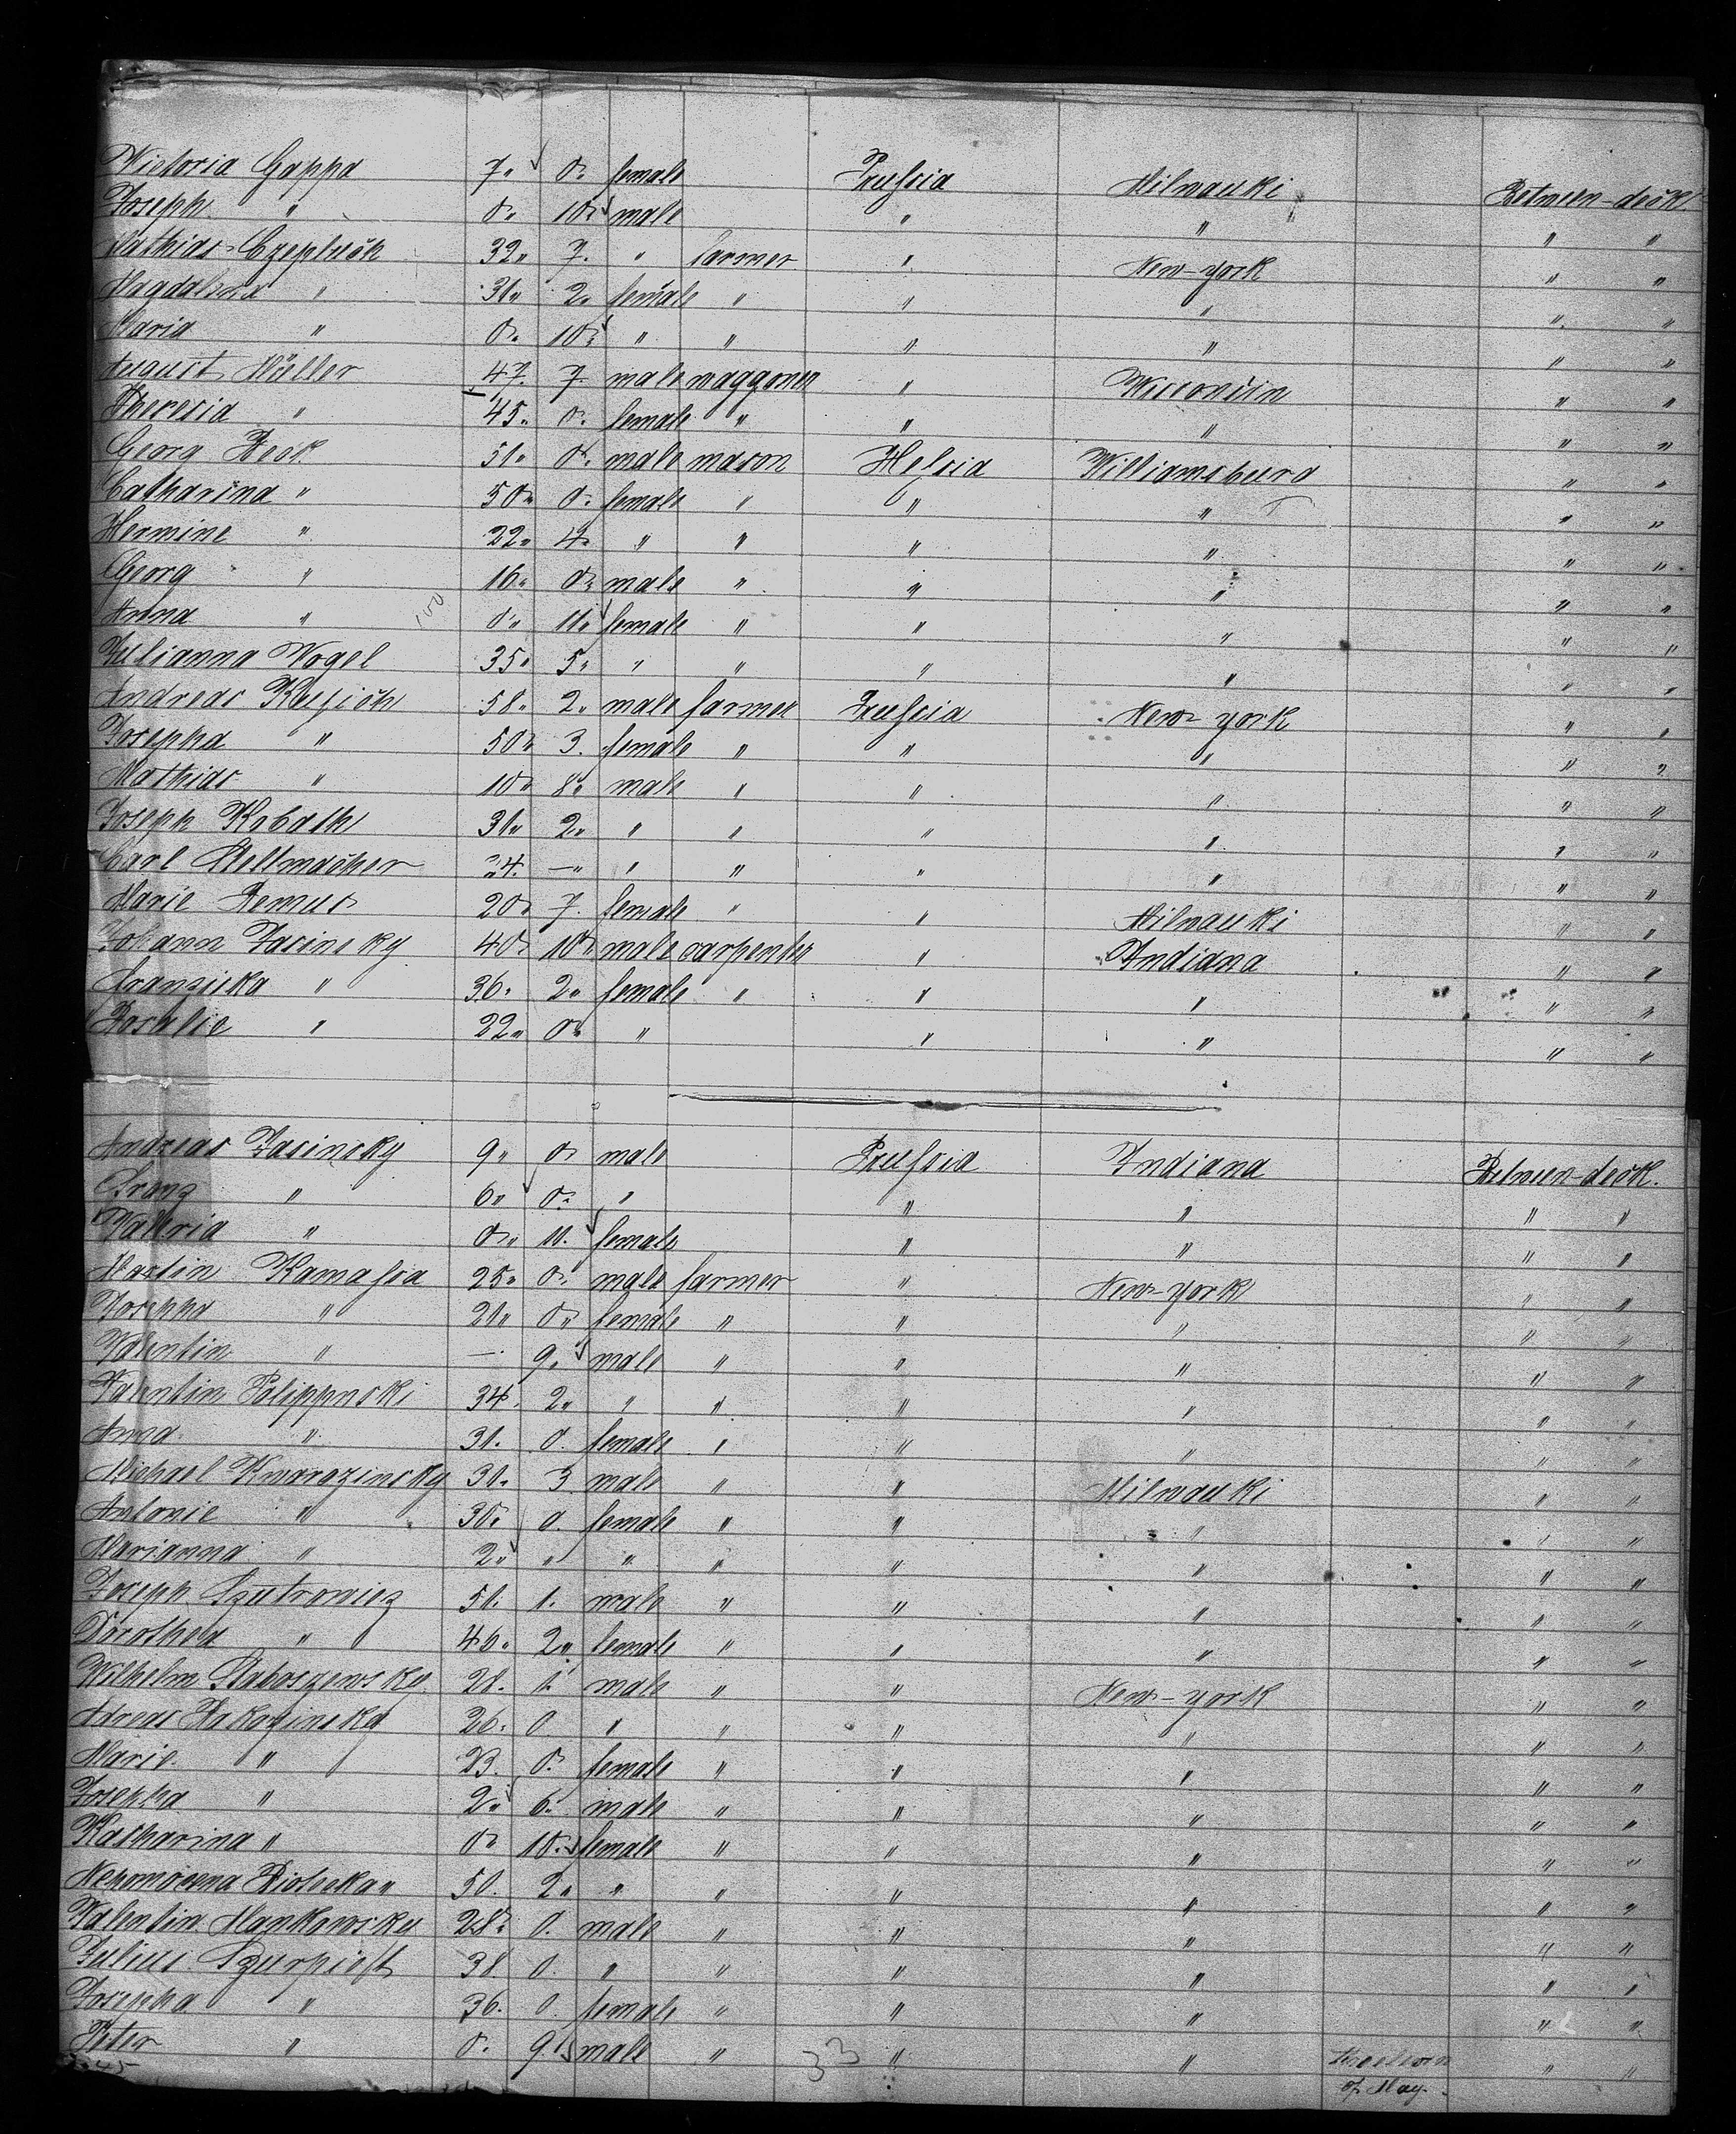 Victoria Gappa 7" 0" female Prussia Milwauki Between-deck.
Joseph " 0" 10" male " " " "
Mathias Czepluch 32" 7. " farmer " New-york " "
Magdalena " 31" 2" female " " " " "
Maria " 0" 10" " " " " " "
August Müller 47. 7. male waggoner " Wisconsin " "
Theresia " 45" 0" female " " " " "
Georg Heck 51" 0" male mason Hessia Williamsburg " "
Catharina " 50" 0" female " " " " "
Hermine " 22" 4" " " " " " "
Georg " 16" 0" male " " " " "
Anna " 100 0" 11" female " " " " "
Julianna Vogel 35" 5" " " " " " "
Andreas 58" 2" male farmer Prussia New-york " "
Josepha " 50" 3. female " " " " "
Mathias " 10" 8" male " " " " "
Joseph Kobath 31" 2" " " " " " "
Carl Stellmacher 24. —" " " " " " "
Marie Remus 20" 7. female " " Milwauki " "
Johann Jasinsky 40" 10" male carpenter " Indiana " "
Franziska " 36" 2" female " " " " "
Rosalie " 22" 0" " " " " "
Andreas Jasinsky 9" 0" male Prussia Indiana Between-deck.
Franz " 6" 0" " " " " "
Valeria " 0" 11. female " " " "
Martin Kamassa 25" 0" male farmer " New-york " "
Josepha " 21" 0" female " " " " "
Valentin " — 9" male " " " " "
Valentin 34. 2" " " " " " "
Anna " 31. 0. female " " " " "
Michael Kwarazinsky 30. 3 male " " Milwauki " "
Antonie " 30. 0. female " " " " "
Marianna " 2" " " " " " " "
Joseph Szutrowicz 51. 1. male " " " " "
Dorothea " 46" 2" female " " " " "
Wilhelm 28. 1. male " " New-york " "
Adreas 26. 0 " " " " " "
Marie " 23. 0" female " " " " "
Josepha " 2" 6" male " " " " "
Katharina " 0" 10" female " " " " "
50. 2" " " " " " "
Valentin Mankowsky 28" 0. male " " " " "
Julius Szurpiest 38. 0. " " " " " "
Josepha " 36. 0. female " " " " "
Peter " 0. 9. male " 33 " " " "
of May.